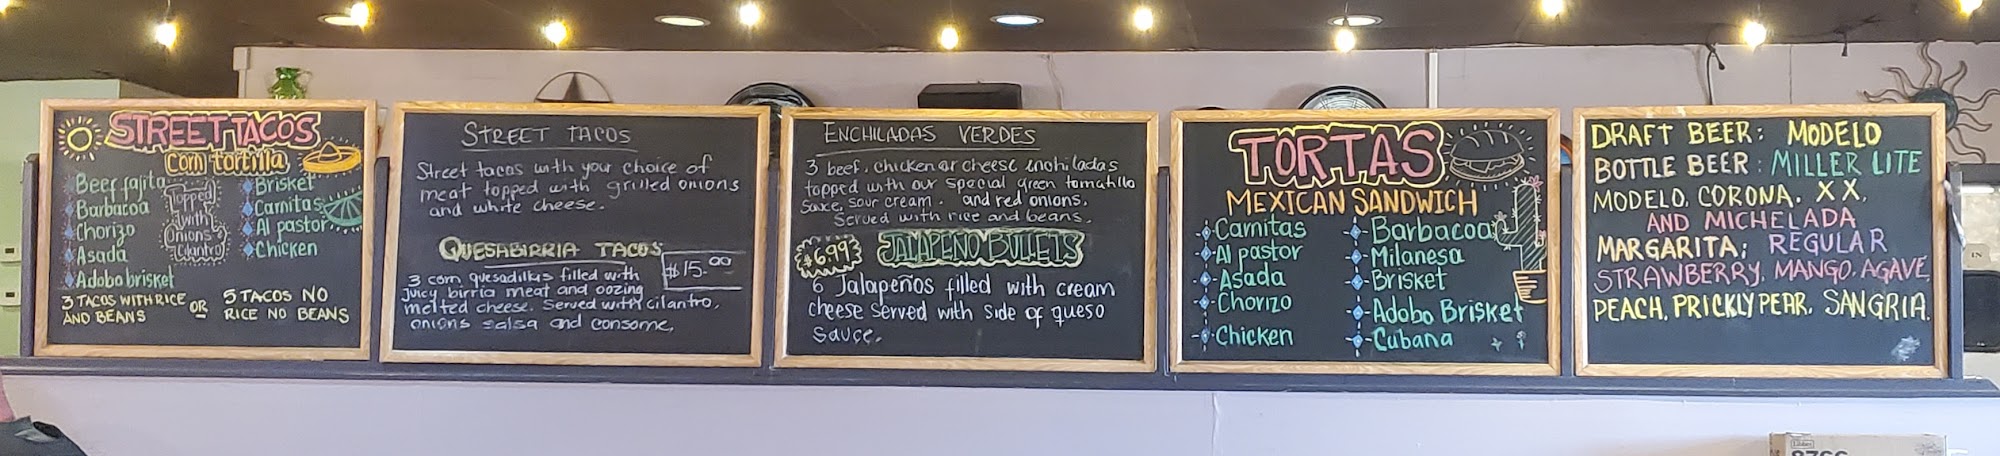 STREET TACOS
corn tortilla
Beef fajita
Barbacoa
Chorizo
Asada
Adobo brisket
Topped
with
Onions &
Cilantro
Brisket
Carnitas
Al pastor
Chicken
3 TACOS WITH RICE
AND BEANS
OR
5 TACOS NO
RICE NO BEANS
STREET TACOS
Street tacos with your choice of
meat topped with grilled onions
and white cheese.
QUESABIRRIA TACOS
$15.00
3 corn quesadillas filled with
juicy birria meat and oozing
melted cheese. Served with cilantro,
onions salsa and consome.
ENCHILADAS VERDES
3 beef, chicken or cheese enchiladas
topped with our special green tomatillo
sauce, sour cream. and red onions.
Served with rice and beans.
$6.99
JALAPEÑO BULLETS
6 Jalapeños filled with cream
cheese served with side of queso
sauce.
TORTAS
MEXICAN SANDWICH
Carnitas
Al pastor
Asada
Chorizo
Chicken
Barbacoa
Milanesa
Brisket
Adobo Brisket
Cubana
DRAFT BEER: MODELO
BOTTLE BEER: MILLER LITE
MODELO, CORONA. XX,
AND MICHELADA
MARGARITA; REGULAR
STRAWBERRY, MANGO, AGAVE,
PEACH, PRICKLY PEAR, SANGRIA.